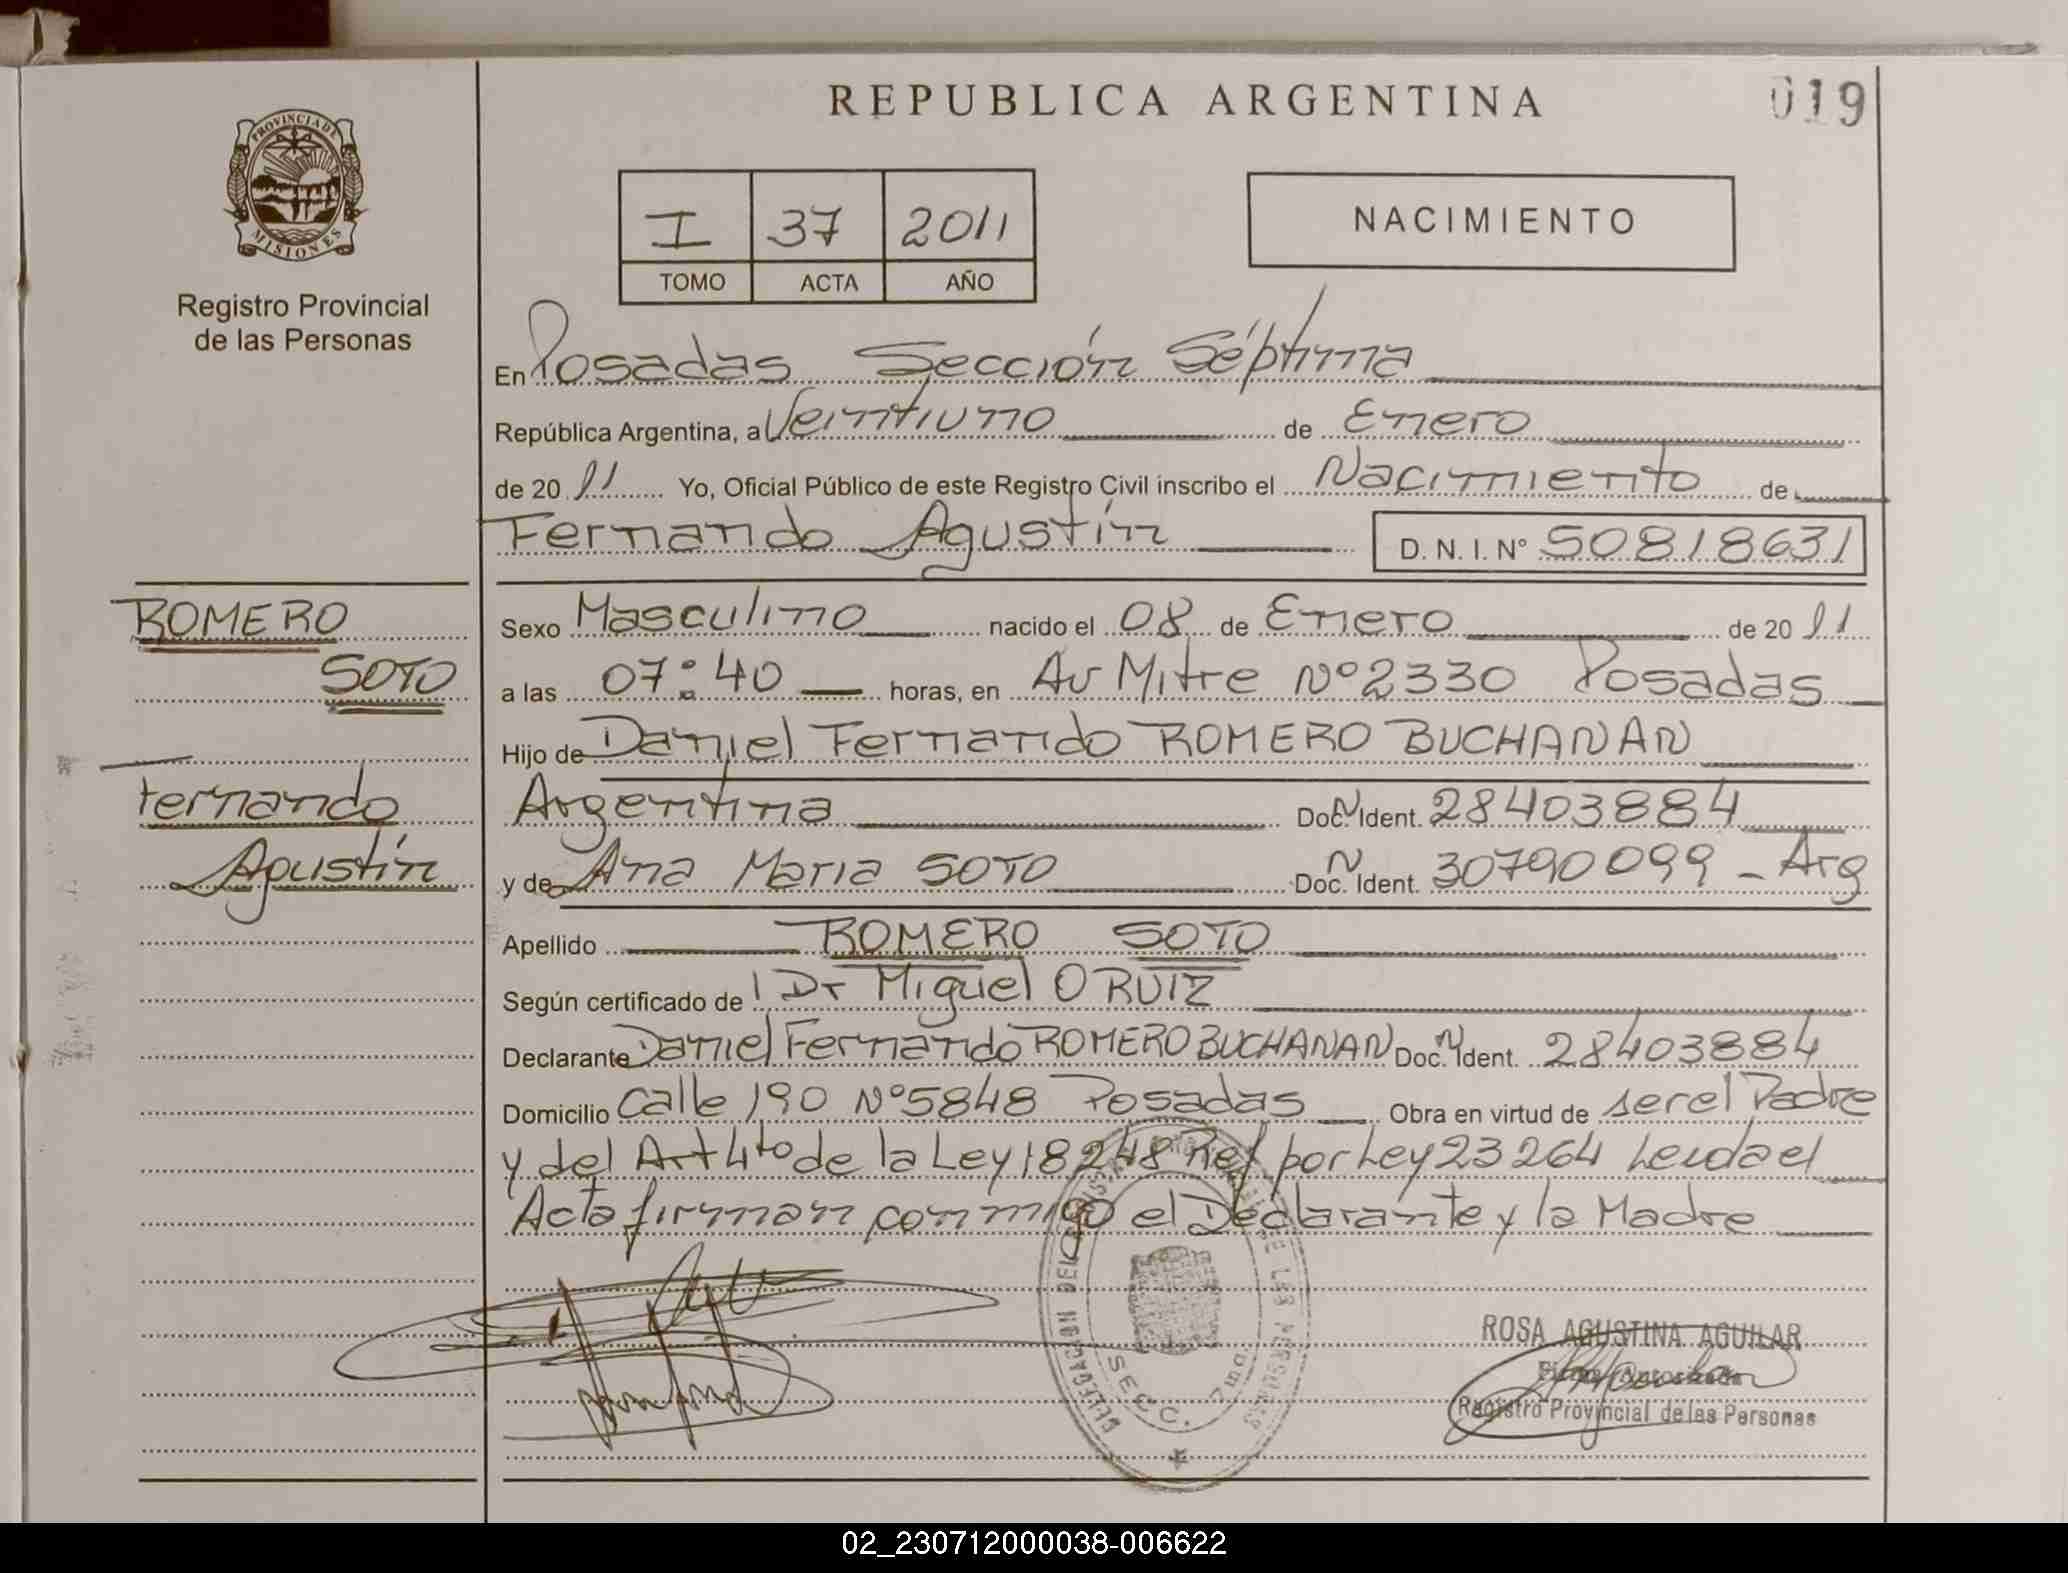 REPUBLICA ARGENTINA
019
PROVINCIA DE
MISIONES
Registro Provincial
de las Personas
I 37 2011
TOMO ACTA AÑO
NACIMIENTO
En Posadas Sección Séptima
República Argentina, a Veintiuno de Enero
de 20 11 Yo, Oficial Público de este Registro Civil inscribo el Nacimiento de
Fernando Agustín D. N. I. Nº 50818631
ROMERO
SOTO
Fernando
Agustín
Sexo Masculino nacido el 08 de Enero de 20 11
a las 07:40 horas, en Av Mitre Nº 2330 Posadas
Hijo de Daniel Fernando ROMERO BUCHANAN
Argentina Doc. N Ident. 28403884
y de Ana Maria SOTO Doc. N Ident. 30790099 - Arg
Apellido ROMERO SOTO
Según certificado de l Dr Miguel O RUIZ
Declarante Daniel Fernando ROMERO BUCHANAN Doc. N Ident. 28403884
Domicilio Calle 190 Nº 5848 Posadas Obra en virtud de ser el Padre
y del Art 4to de la Ley 18248 Ref por Ley 23264 Leida el
Acta firman conmigo el Declarante y la Madre
DELEGACION DEL DE LAS PERSONAS
SECC. 7ma
ROSA AGUSTINA AGUILAR
Firma Autorizada
Registro Provincial de las Personas
02_230712000038-006622